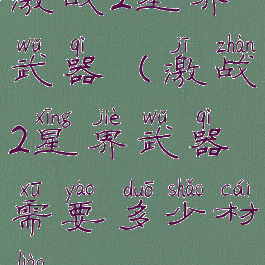 激战2星界
wǔ qì jī zhàn
武器（激战
xīng jiè wǔ qì
2星界武器
xū yào duō shǎo cái
需要多少材